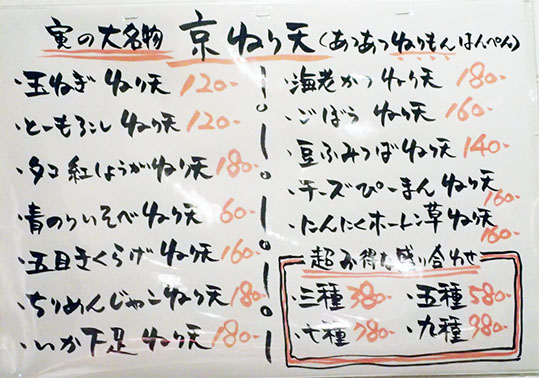 寅の大名物 京ねり天(あつあつねりもんはんぺん)
・玉ねぎねり天 120-
・とーもろこしねり天 120-
・タコ紅しょうがねり天 180-
・青のりいそべねり天 160-
・五目きくらげねり天 160-
・ちりめんじゃこねり天 180-
・いか下足ねり天 180-
・海老かつねり天 180-
・ごぼうねり天 160-
・豆ふみつばねり天 140-
・チーズぴーまんねり天 160-
・にんにくホーレン草ねり天 160-
超お得な盛り合わせ
・三種 380- ・五種 580-
・七種 780- ・九種 980-